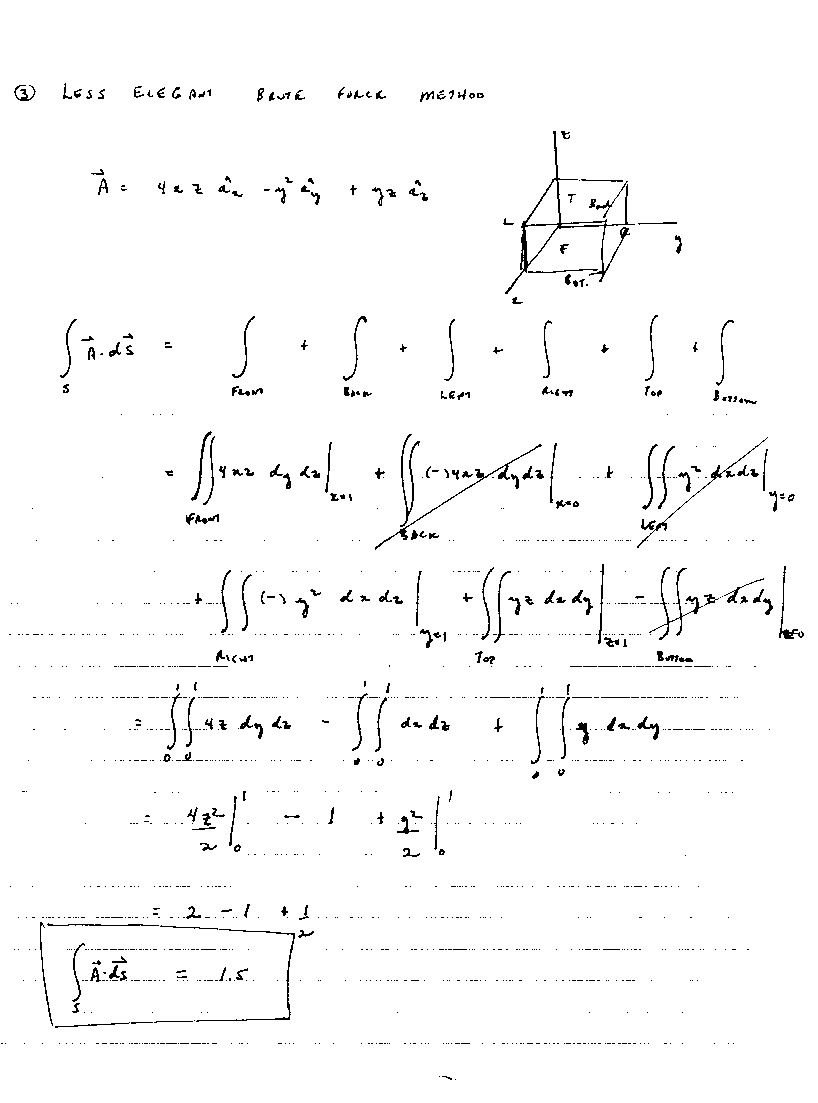 ③ LESS ELEGANT BRUTE FORCE METHOD
z
A⃗ = 4xz âx - y² ây + yz âz
T BACK
L R
F y
BOT.
x
∫S A⃗·dS⃗ = ∫FRONT + ∫BACK + ∫LEFT + ∫RIGHT + ∫TOP + ∫BOTTOM
= ∬FRONT 4xz dy dz |x=1 + ∬BACK (-)4xz dy dz |x=0 + ∬LEFT y² dx dz |y=0
+ ∬RIGHT (-) y² dx dz |y=1 + ∬TOP yz dx dy |z=1 - ∬BOTTOM yz dx dy |z=0
= ∫₀¹∫₀¹ 4z dy dz - ∫₀¹∫₀¹ dx dz + ∫₀¹∫₀¹ y dx dy
= 4z²/2 |₀¹ - 1 + y²/2 |₀¹
= 2 - 1 + 1/2
∫S A⃗·dS⃗ = 1.5